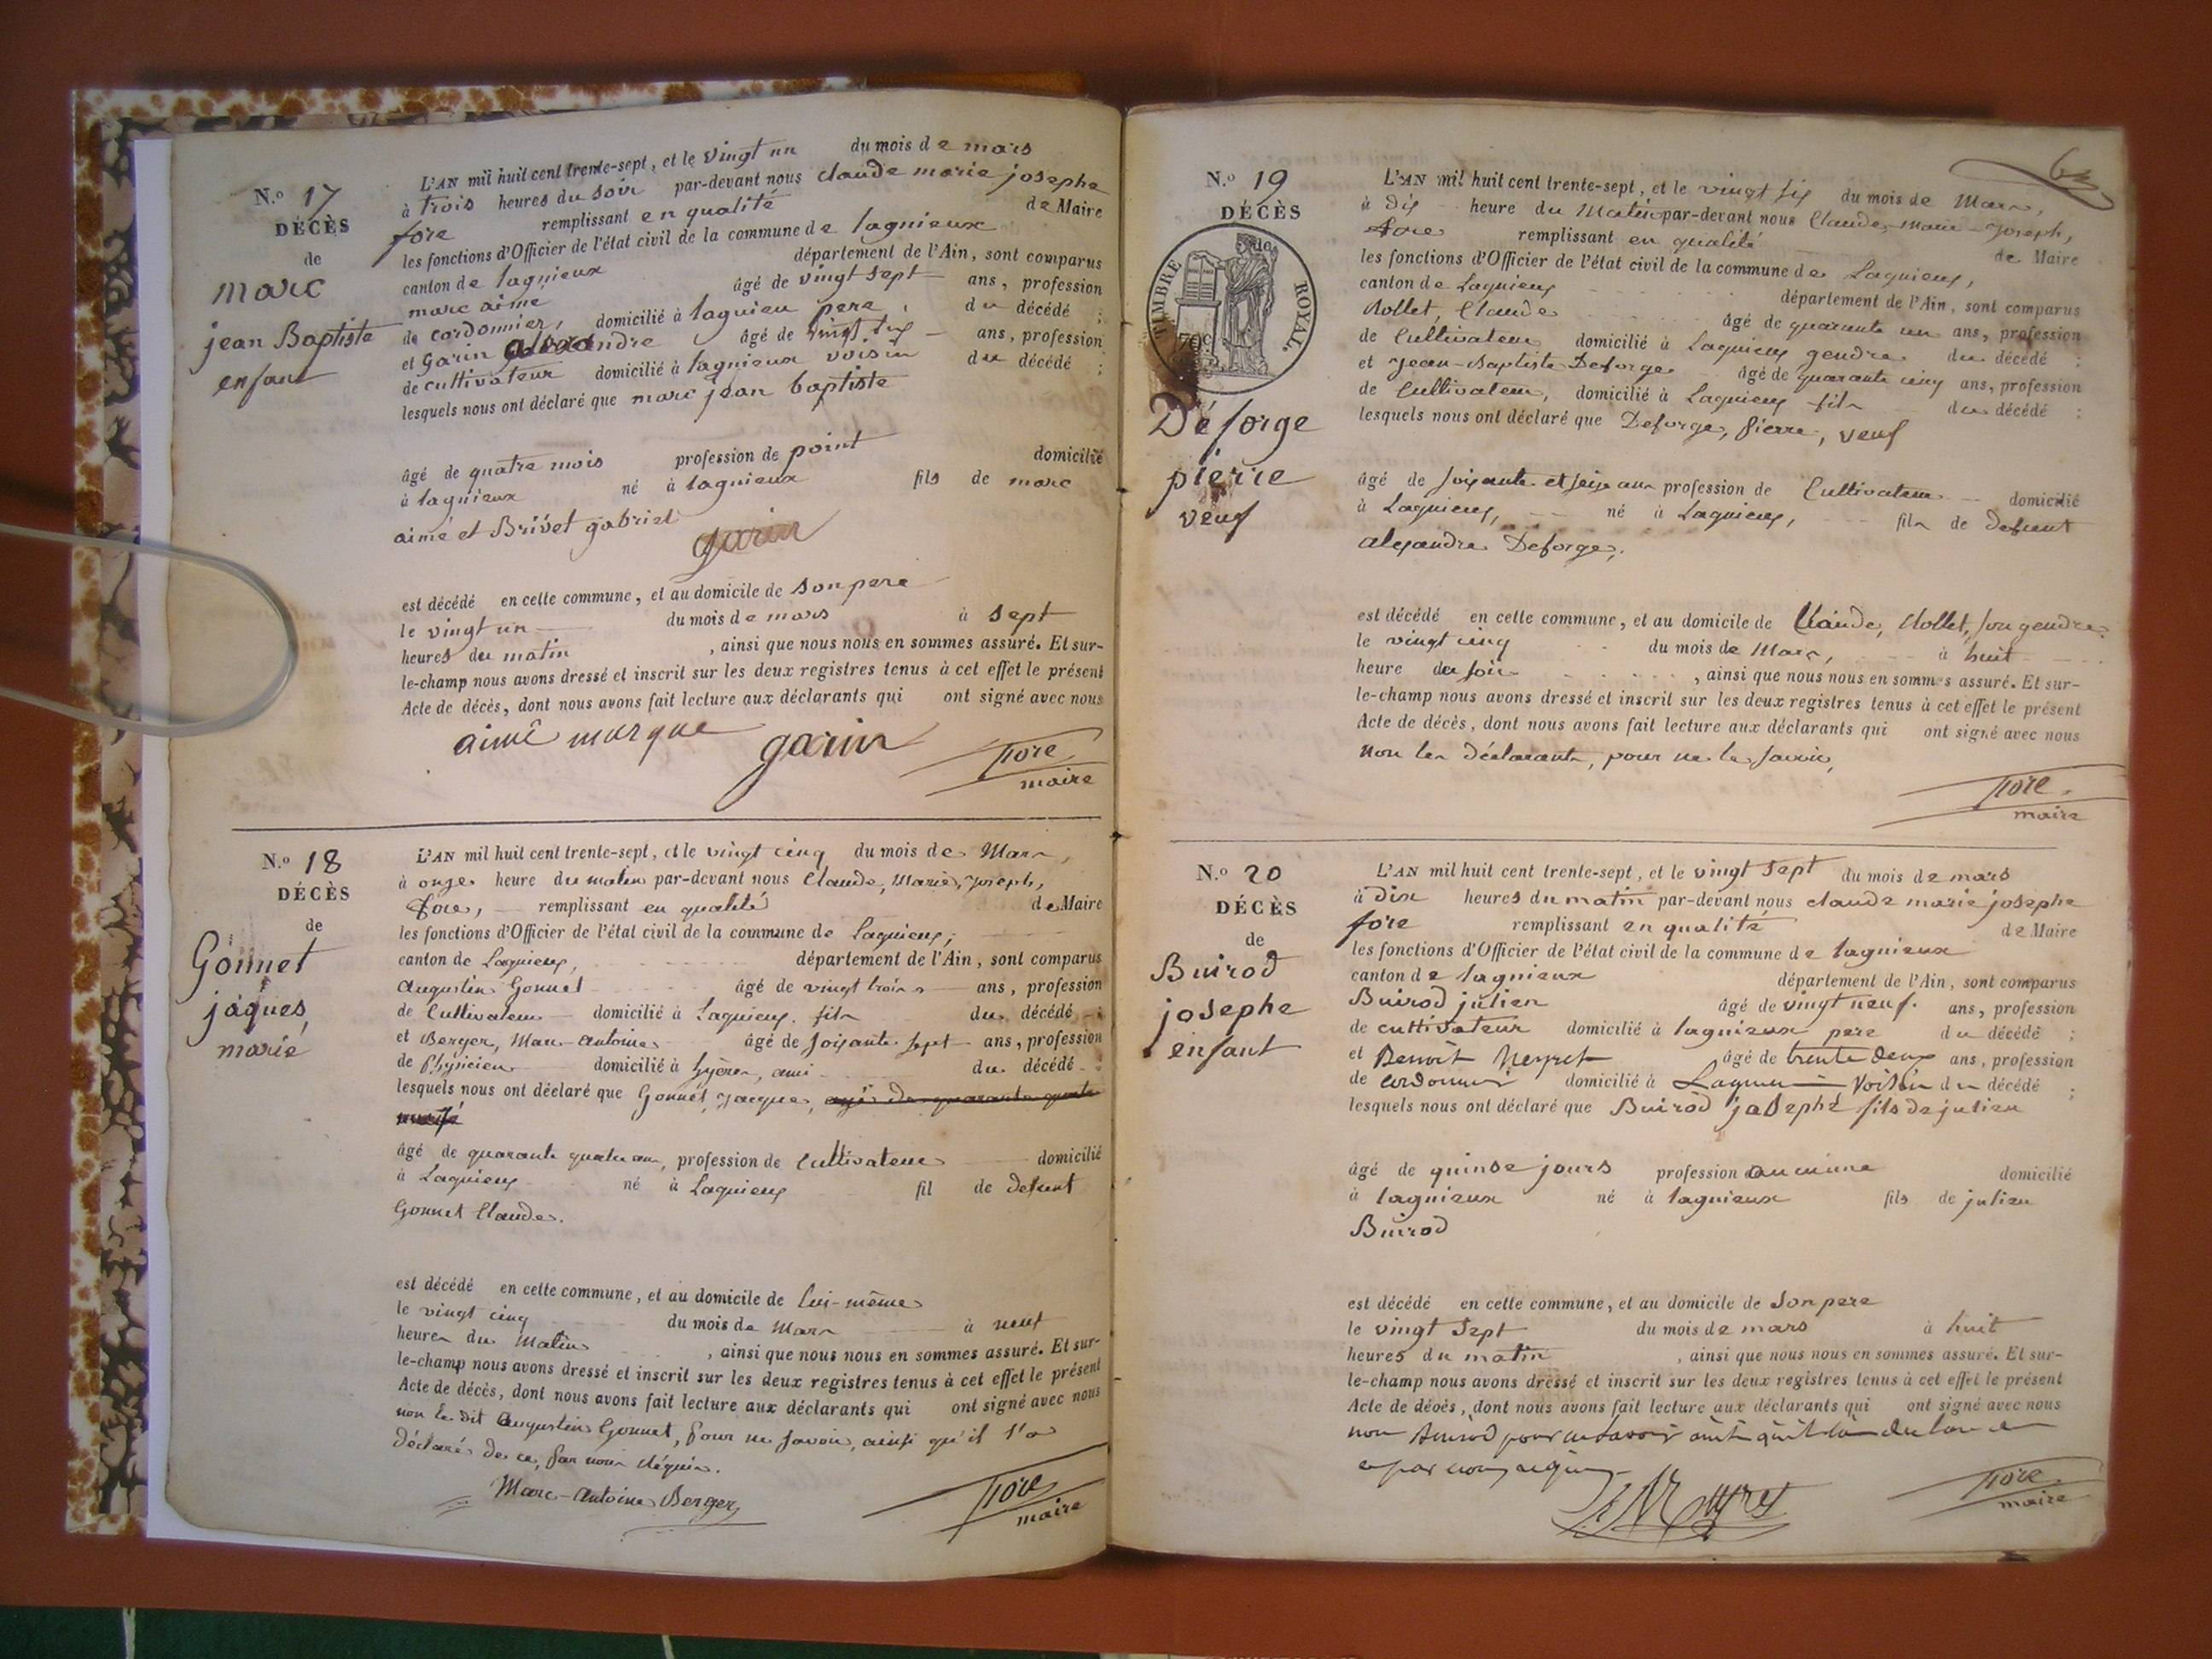 N.o 17
DÉCÈS
de
marc
jean Baptiste
enfant
L'AN mil huit cent trente-sept, et le vingt un du mois de mars
à trois heures du soir par-devant nous claude marie josephe
fore remplissant en qualité de Maire
les fonctions d'Officier de l'état civil de la commune de lagnieux
canton de lagnieux département de l'Ain, sont comparus
marc aimé âgé de vingt sept ans, profession
de cordonnier, domicilié à lagnieu pere du décédé ;
et Garin alexandre âgé de vingt six ans, profession
de cultivateur domicilié à lagnieux voisin du décédé ;
lesquels nous ont déclaré que marc jean baptiste
âgé de quatre mois profession de point domicilié
à lagnieux né à lagnieux fils de marc
aimé et Brivet gabriel
garin
est décédé en cette commune, et au domicile de son pere
le vingt un du mois de mars à sept
heures du matin , ainsi que nous nous en sommes assuré. Et sur-
le-champ nous avons dressé et inscrit sur les deux registres tenus à cet effet le présent
Acte de décès, dont nous avons fait lecture aux déclarants qui ont signé avec nous
aimé marque garin fore
maire
N.o 18
DÉCÈS
de
Gonnet
jaques,
marié
L'AN mil huit cent trente-sept, et le vingt cinq du mois de Mars,
à onze heure du matin par-devant nous Claude, Marie, Joseph,
fore, remplissant en qualité de Maire
les fonctions d'Officier de l'état civil de la commune de Lagnieux,
canton de Lagnieux, département de l'Ain, sont comparus
Augustin Gonnet âgé de vingt trois ans, profession
de Cultivateur domicilié à Lagnieux fils du décédé ;
et Berger, Marc-Antoine âgé de soixante sept ans, profession
de Physicien domicilié à hyères, ami du décédé ;
lesquels nous ont déclaré que Gonnet, Jacques,
âgé de quarante quatre ans, profession de Cultivateur domicilié
à Lagnieux né à Lagnieux fil de defunt
Gonnet Claude.
est décédé en cette commune, et au domicile de lui-même
le vingt cinq du mois de Mars à neuf
heures du Matin , ainsi que nous nous en sommes assuré. Et sur-
le-champ nous avons dressé et inscrit sur les deux registres tenus à cet effet le présent
Acte de décès, dont nous avons fait lecture aux déclarants qui ont signé avec nous
non le dit Augustin Gonnet, pour ne savoir, ainsi qu'il l'a
déclaré de ce, par nous réquis.
Marc-Antoine Berger fore
maire
N.o 19
DÉCÈS
TIMBRE ROYAL.
Déforge
pierre
veuf
L'AN mil huit cent trente-sept, et le vingt six du mois de Mars,
à dix heure du Matin par-devant nous Claude, Marie-Joseph,
fore remplissant en qualité de Maire
les fonctions d'Officier de l'état civil de la commune de Lagnieux,
canton de Lagnieux département de l'Ain, sont comparus
Rollet, Claude âgé de quarante un ans, profession
de Cultivateur domicilié à Lagnieux gendre du décédé ;
et Jean-Baptiste Deforge âgé de quarante cinq ans, profession
de Cultivateur, domicilié à Lagnieux fils du décédé ;
lesquels nous ont déclaré que Deforge, Pierre, veuf
âgé de soixante et seize ans profession de Cultivateur domicilié
à Lagnieux, né à Lagnieux, fils de defunt
alexandre Deforge,
est décédé en cette commune, et au domicile de Claude, Rollet, son gendre,
le vingt cinq du mois de Mars, à huit
heure du soir , ainsi que nous nous en sommes assuré. Et sur-
le-champ nous avons dressé et inscrit sur les deux registres tenus à cet effet le présent
Acte de décès, dont nous avons fait lecture aux déclarants qui ont signé avec nous
non les déclarants, pour ne le savoir,
fore
maire
N.o 20
DÉCÈS
de
Buirod
josephe
enfant
L'AN mil huit cent trente-sept, et le vingt sept du mois de mars
à dix heures du matin par-devant nous claude marie josephe
fore remplissant en qualité de Maire
les fonctions d'Officier de l'état civil de la commune de lagnieux
canton de lagnieux département de l'Ain, sont comparus
Buirod julien âgé de vingt neuf. ans, profession
de cultivateur domicilié à lagnieux pere du décédé ;
et Benoit Neyret âgé de trente deux ans, profession
de cordonnier domicilié à Lagnieu voisin du décédé ;
lesquels nous ont déclaré que Buirod josephe fils de julien
âgé de quinse jours profession aucunne domicilié
à lagnieux né à lagnieux fils de julien
Buirod
est décédé en cette commune, et au domicile de son pere
le vingt sept du mois de mars à huit
heures du matin , ainsi que nous nous en sommes assuré. Et sur-
le-champ nous avons dressé et inscrit sur les deux registres tenus à cet effet le présent
Acte de décès, dont nous avons fait lecture aux déclarants qui ont signé avec nous
non Buirod pour ne savoir ainsi qu'il l'a déclaré
par nous requis
Neyret fore
maire